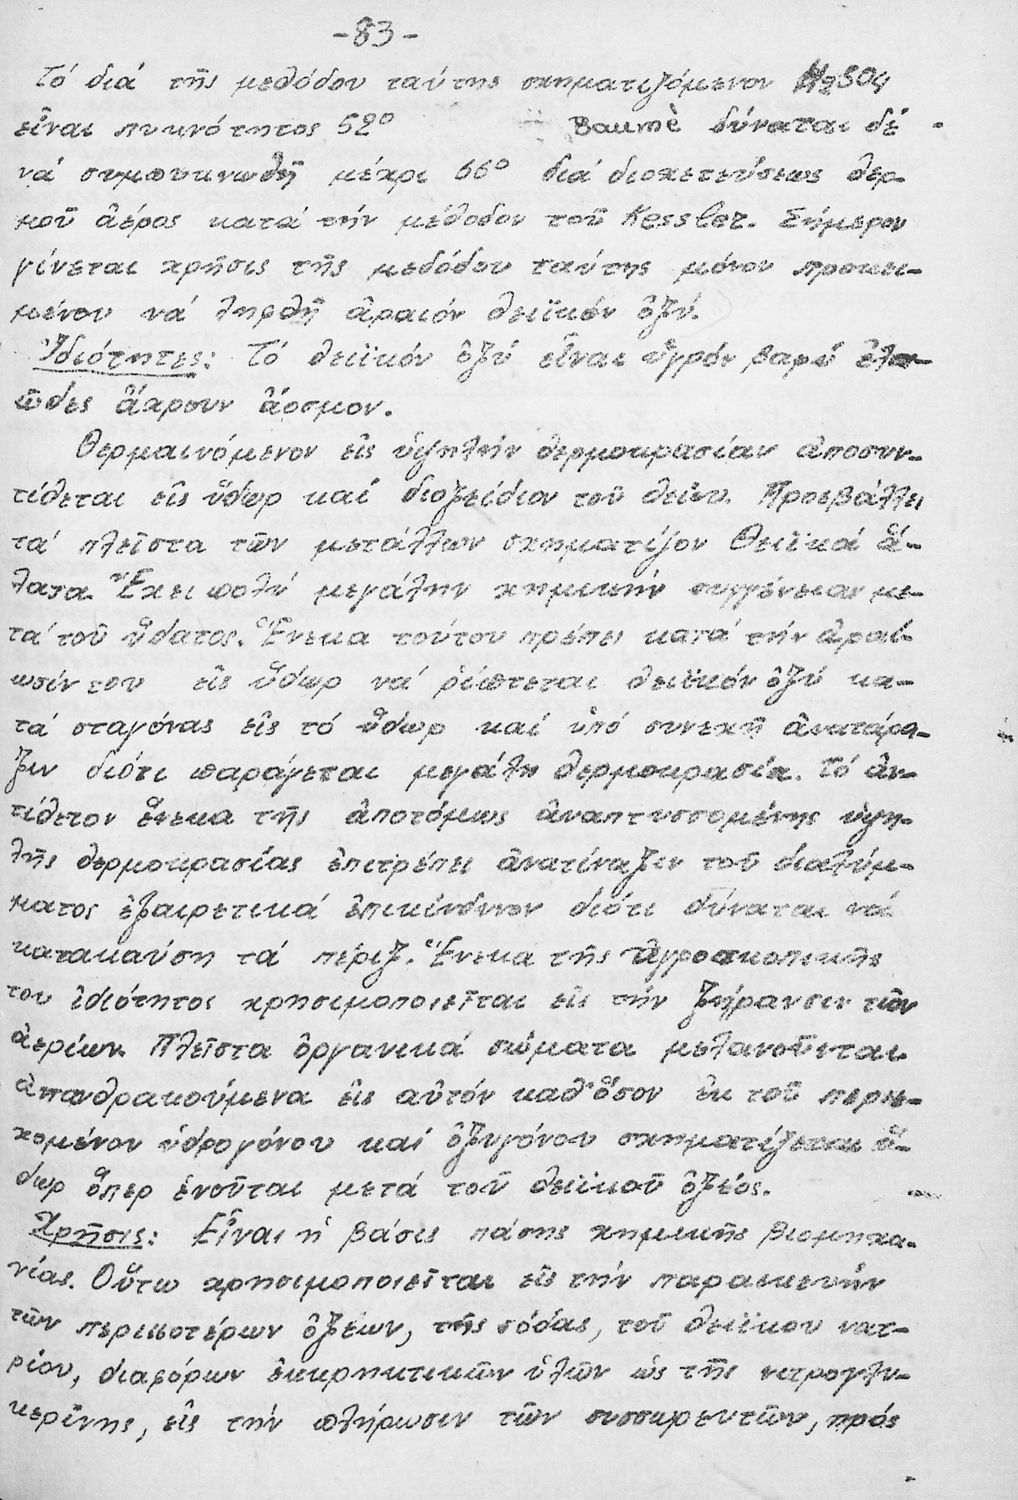 -83-
Τό διά τῆς μεθόδου ταύτης σχηματιζόμενον H2SO4
εἶναι πυκνότητος 52° Baumè δύναται δέ
νά συμπυκνωθῆ μέχρι 66° διά διοχετεύσεως θερ-
μοῦ ἀέρος κατά τήν μέθοδον τοῦ Kessler. Σήμερον
γίνεται χρῆσις τῆς μεθόδου ταύτης μόνον προκει-
μένου νά ληφθῆ ἀραιόν θειϊκόν ὀξύ.
Ἰδιότητες: Τό θειϊκόν ὀξύ εἶναι ὑγρόν βαρύ ἐλαι-
ῶδες ἄχρουν ἄοσμον.
Θερμαινόμενον εἰς ὑψηλήν θερμοκρασίαν ἀποσυν-
τίθεται εἰς ὕδωρ καί διοξείδιον τοῦ θείου. Προσβάλλει
τά πλεῖστα τῶν μετάλλων σχηματίζον Θειϊκά ἅ-
λατα. Ἔχει πολύ μεγάλην χημικήν συγγένειαν με-
τά τοῦ ὕδατος. Ἕνεκα τούτου πρέπει κατά τήν ἀραί-
ωσίν του εἰς ὕδωρ νά ρίπτεται θειϊκόν ὀξύ κα-
τά σταγόνας εἰς τό ὕδωρ καί ὑπό συνεχῆ ἀνατάρα-
ξιν διότι παράγεται μεγάλη θερμοκρασία. Τό ἀν-
τίθετον ἕνεκα τῆς ἀποτόμως ἀναπτυσσομένης ὑψη-
λῆς θερμοκρασίας ἐπιτρέπει ἀνατίναξιν τοῦ διαλύμ-
ματος ἐξαιρετικά ἐπικίνδυνον διότι δύναται νά
κατακαύση τά πέριξ. Ἕνεκα τῆς ὑγροσκοπικῆς
του ἰδιότητος χρησιμοποιεῖται εἰς τήν ξήρανσιν τῶν
ἀερίων. Πλεῖστα ὀργανικά σώματα μελανοῦνται
ἀπανθρακούμενα εἰς αὐτόν καθ' ὅσον ἐκ τοῦ περιε-
χομένου ὑδρογόνου καί ὀξυγόνου σχηματίζεται ὕ-
δωρ ὅπερ ἑνοῦται μετά τοῦ θειϊκοῦ ὀξέος.
Χρῆσις: Εἶναι ἡ βάσις πάσης χημικῆς βιομηχα-
νίας. Οὕτω χρησιμοποιεῖται εἰς τήν παρασκευήν
τῶν περισσοτέρων ὀξέων, τῆς σόδας, τοῦ θειϊκου νατ-
ρίου, διαφόρων ἐκρηκτικῶν ὑλῶν ὡς τῆς νιτρογλυ-
κερίνης, εἰς τήν πλήρωσιν τῶν συσσωρευτῶν, πρός